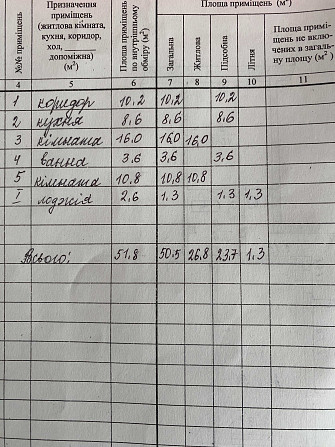 Площа приміщень (м²)
№№ приміщень
Призначення приміщень (житлова кімната, кухня, коридор, хол, ______ допоміжна) (м²)
Площа приміщень по внутрішньому обміру (м²)
Загальна
Житлова
Підсобна
Літня
Площа приміщень не включених в загальну площу (м²)
4 5 6 7 8 9 10 11
1 коридор 10,2 10,2 10,2
2 кухня 8,6 8,6 8,6
3 кімната 16.0 16,0 16,0
4 ванна 3,6 3,6 3,6
5 кімната 10,8 10,8 10,8
I лоджія 2,6 1.3 1.3 1,3
Всього: 51,8 50.5 26.8 23.7 1.3